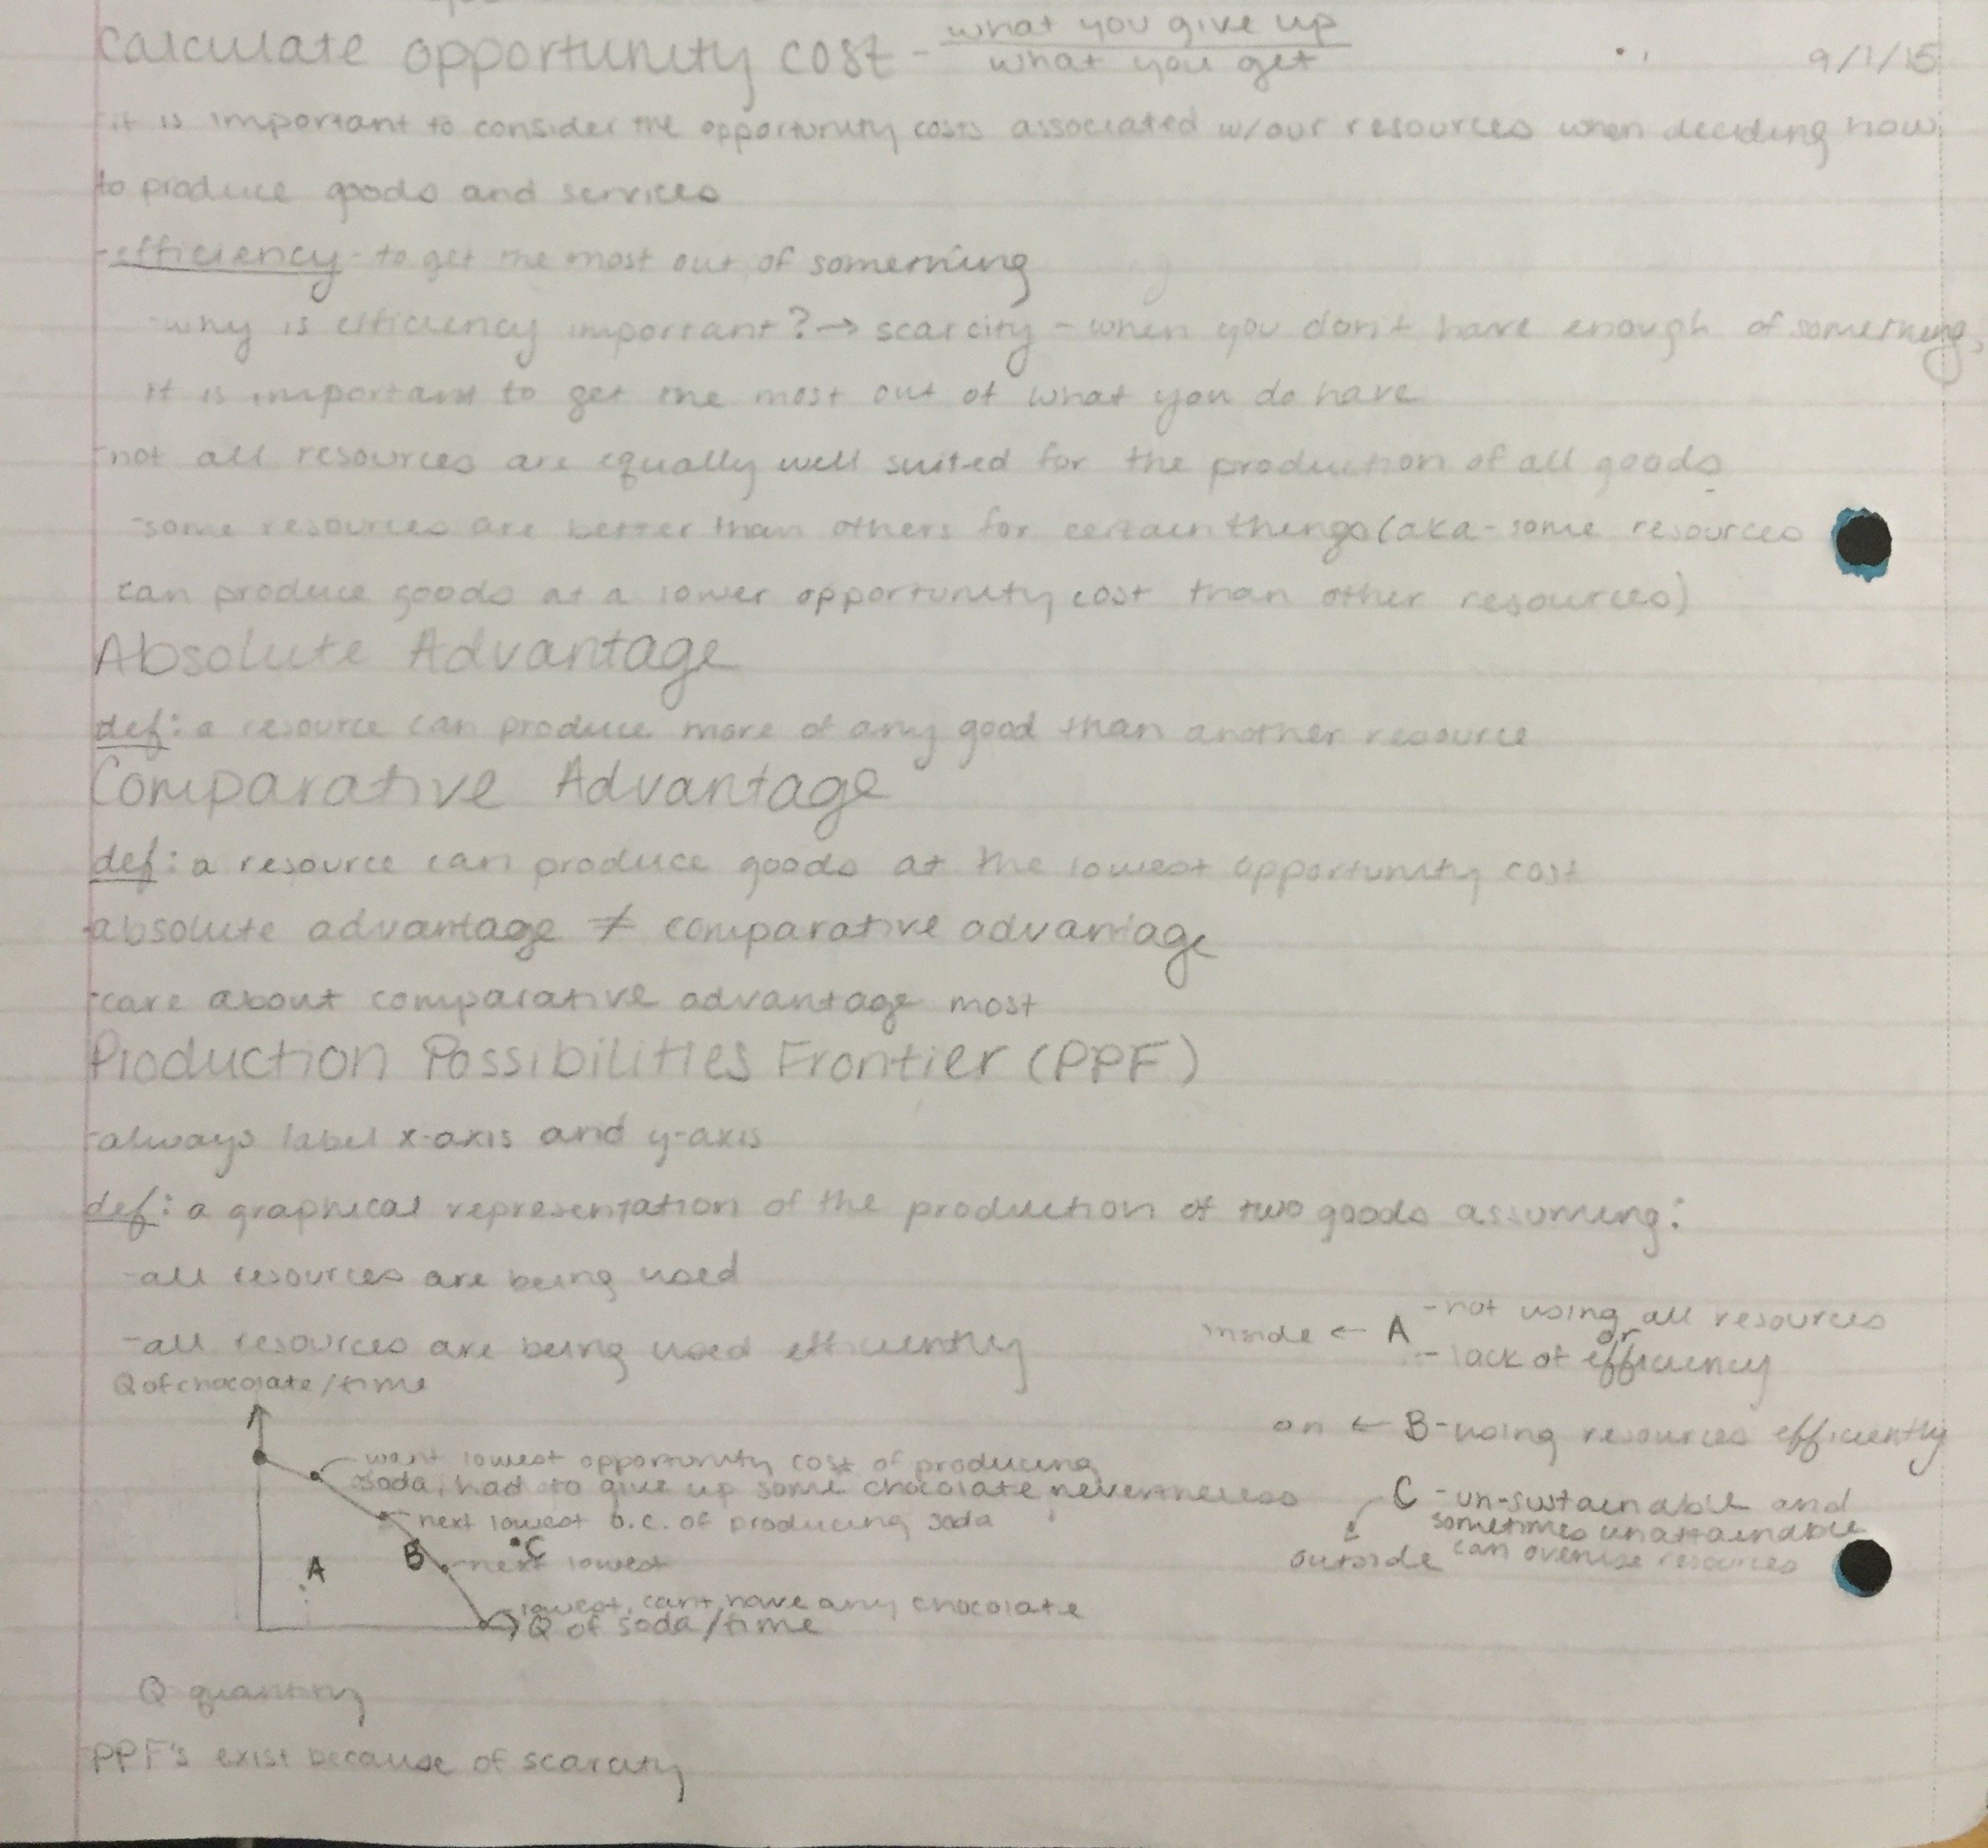 calculate opportunity cost - what you give up / what you get
9/1/15
it is important to consider the opportunity costs associated w/our resources when deciding how
to produce goods and services
-efficiency - to get the most out of something
-why is efficiency important? → scarcity - when you don't have enough of something,
it is important to get the most out of what you do have
-not all resources are equally well suited for the production of all goods
-some resources are better than others for certain things (aka-some resources
can produce goods at a lower opportunity cost than other resources)
Absolute Advantage
def: a resource can produce more of any good than another resource
Comparative Advantage
def: a resource can produce goods at the lowest opportunity cost
-absolute advantage ≠ comparative advantage
-care about comparative advantage most
Production Possibilities Frontier (PPF)
-always label x-axis and y-axis
def: a graphical representation of the production of two goods assuming:
-all resources are being used
-all resources are being used efficiently
inside ← A -not using all resources
or
- lack of efficiency
on ← B-using resources efficiently
C -un-sustainable and
sometimes unattainable
outside can overuse resources
Q of chocolate/time
want lowest opportunity cost of producing
soda, had to give up some chocolate nevertheless
next lowest o.c. of producing soda
C
B
next lowest
A
lowest, cant have any chocolate
Q of soda/time
Q quantity
PPF's exist because of scarcity